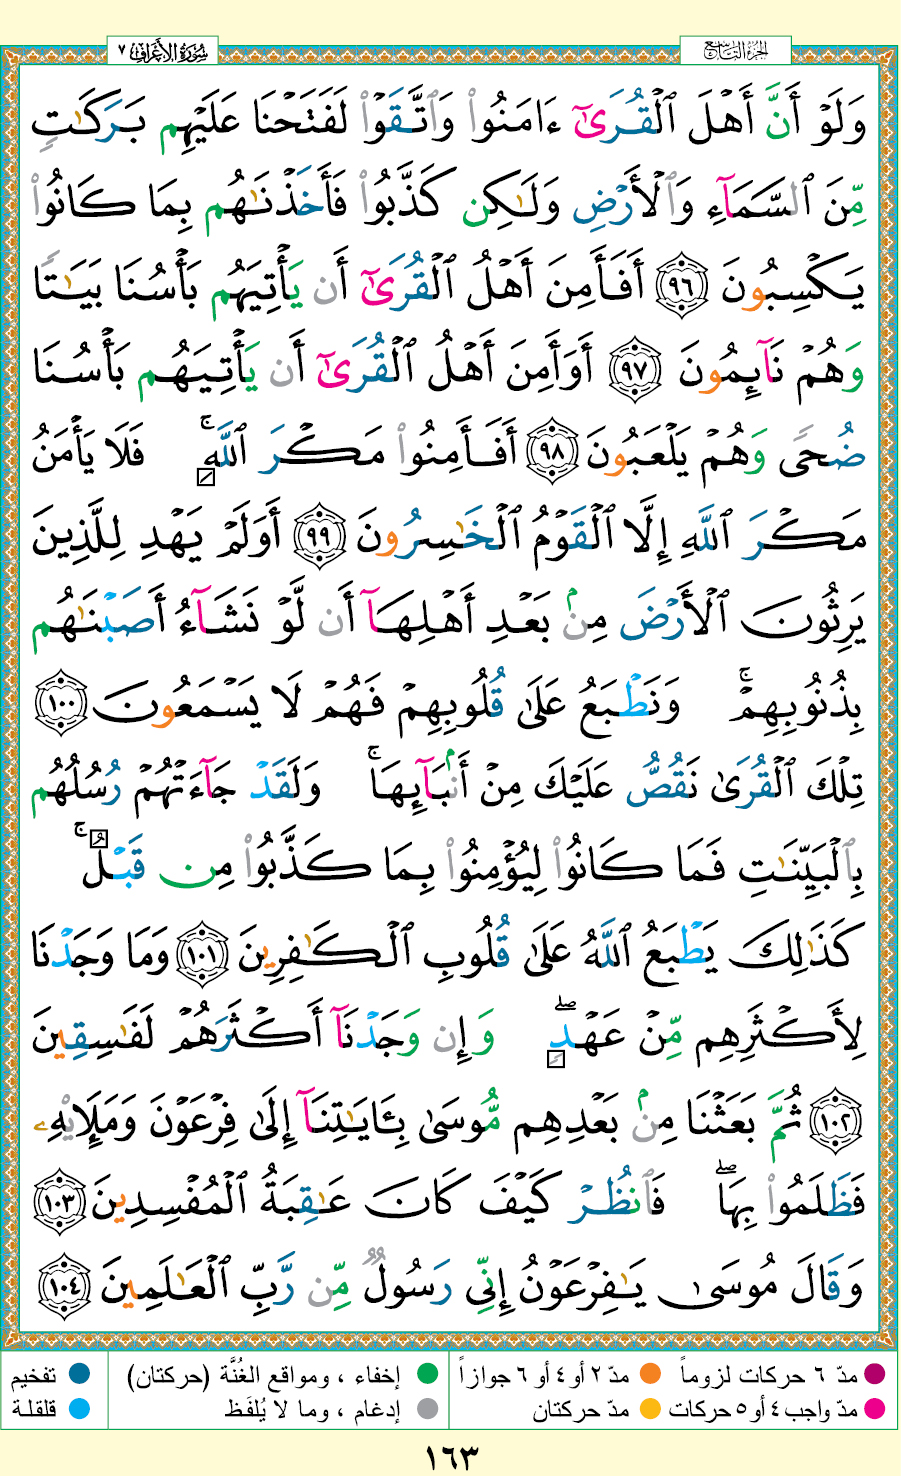 الجزء التاسع
سُورَةُ الأَعْرَافِ ٧
وَلَوْ أَنَّ أَهْلَ ٱلْقُرَىٰٓ ءَامَنُوا۟ وَٱتَّقَوْا۟ لَفَتَحْنَا عَلَيْهِم بَرَكَٰتٍ
مِّنَ ٱلسَّمَآءِ وَٱلْأَرْضِ وَلَٰكِن كَذَّبُوا۟ فَأَخَذْنَٰهُم بِمَا كَانُوا۟
يَكْسِبُونَ ٩٦ أَفَأَمِنَ أَهْلُ ٱلْقُرَىٰٓ أَن يَأْتِيَهُم بَأْسُنَا بَيَٰتًا
وَهُمْ نَآئِمُونَ ٩٧ أَوَأَمِنَ أَهْلُ ٱلْقُرَىٰٓ أَن يَأْتِيَهُم بَأْسُنَا
ضُحًى وَهُمْ يَلْعَبُونَ ٩٨ أَفَأَمِنُوا۟ مَكْرَ ٱللَّهِ ۚ فَلَا يَأْمَنُ
مَكْرَ ٱللَّهِ إِلَّا ٱلْقَوْمُ ٱلْخَٰسِرُونَ ٩٩ أَوَلَمْ يَهْدِ لِلَّذِينَ
يَرِثُونَ ٱلْأَرْضَ مِنۢ بَعْدِ أَهْلِهَآ أَن لَّوْ نَشَآءُ أَصَبْنَٰهُم
بِذُنُوبِهِمْ ۚ وَنَطْبَعُ عَلَىٰ قُلُوبِهِمْ فَهُمْ لَا يَسْمَعُونَ ١٠٠
تِلْكَ ٱلْقُرَىٰ نَقُصُّ عَلَيْكَ مِنْ أَنۢبَآئِهَا ۚ وَلَقَدْ جَآءَتْهُمْ رُسُلُهُم
بِٱلْبَيِّنَٰتِ فَمَا كَانُوا۟ لِيُؤْمِنُوا۟ بِمَا كَذَّبُوا۟ مِن قَبْلُ ۚ
كَذَٰلِكَ يَطْبَعُ ٱللَّهُ عَلَىٰ قُلُوبِ ٱلْكَٰفِرِينَ ١٠١ وَمَا وَجَدْنَا
لِأَكْثَرِهِم مِّنْ عَهْدٍ ۖ وَإِن وَجَدْنَآ أَكْثَرَهُمْ لَفَٰسِقِينَ
١٠٢ ثُمَّ بَعَثْنَا مِنۢ بَعْدِهِم مُّوسَىٰ بِـَٔايَٰتِنَآ إِلَىٰ فِرْعَوْنَ وَمَلَإِي۟هِۦ
فَظَلَمُوا۟ بِهَا ۖ فَٱنظُرْ كَيْفَ كَانَ عَٰقِبَةُ ٱلْمُفْسِدِينَ ١٠٣
وَقَالَ مُوسَىٰ يَٰفِرْعَوْنُ إِنِّى رَسُولٌ مِّن رَّبِّ ٱلْعَٰلَمِينَ ١٠٤
مدّ ٦ حركات لزوماً مدّ ٢ أو ٤ أو ٦ جوازاً إخفاء ، ومواقع الغُنَّة (حركتان) تفخيم
مدّ واجب ٤ أو ٥ حركات مدّ حركتان إدغام ، وما لا يُلفَظ قلقلة
١٦٣